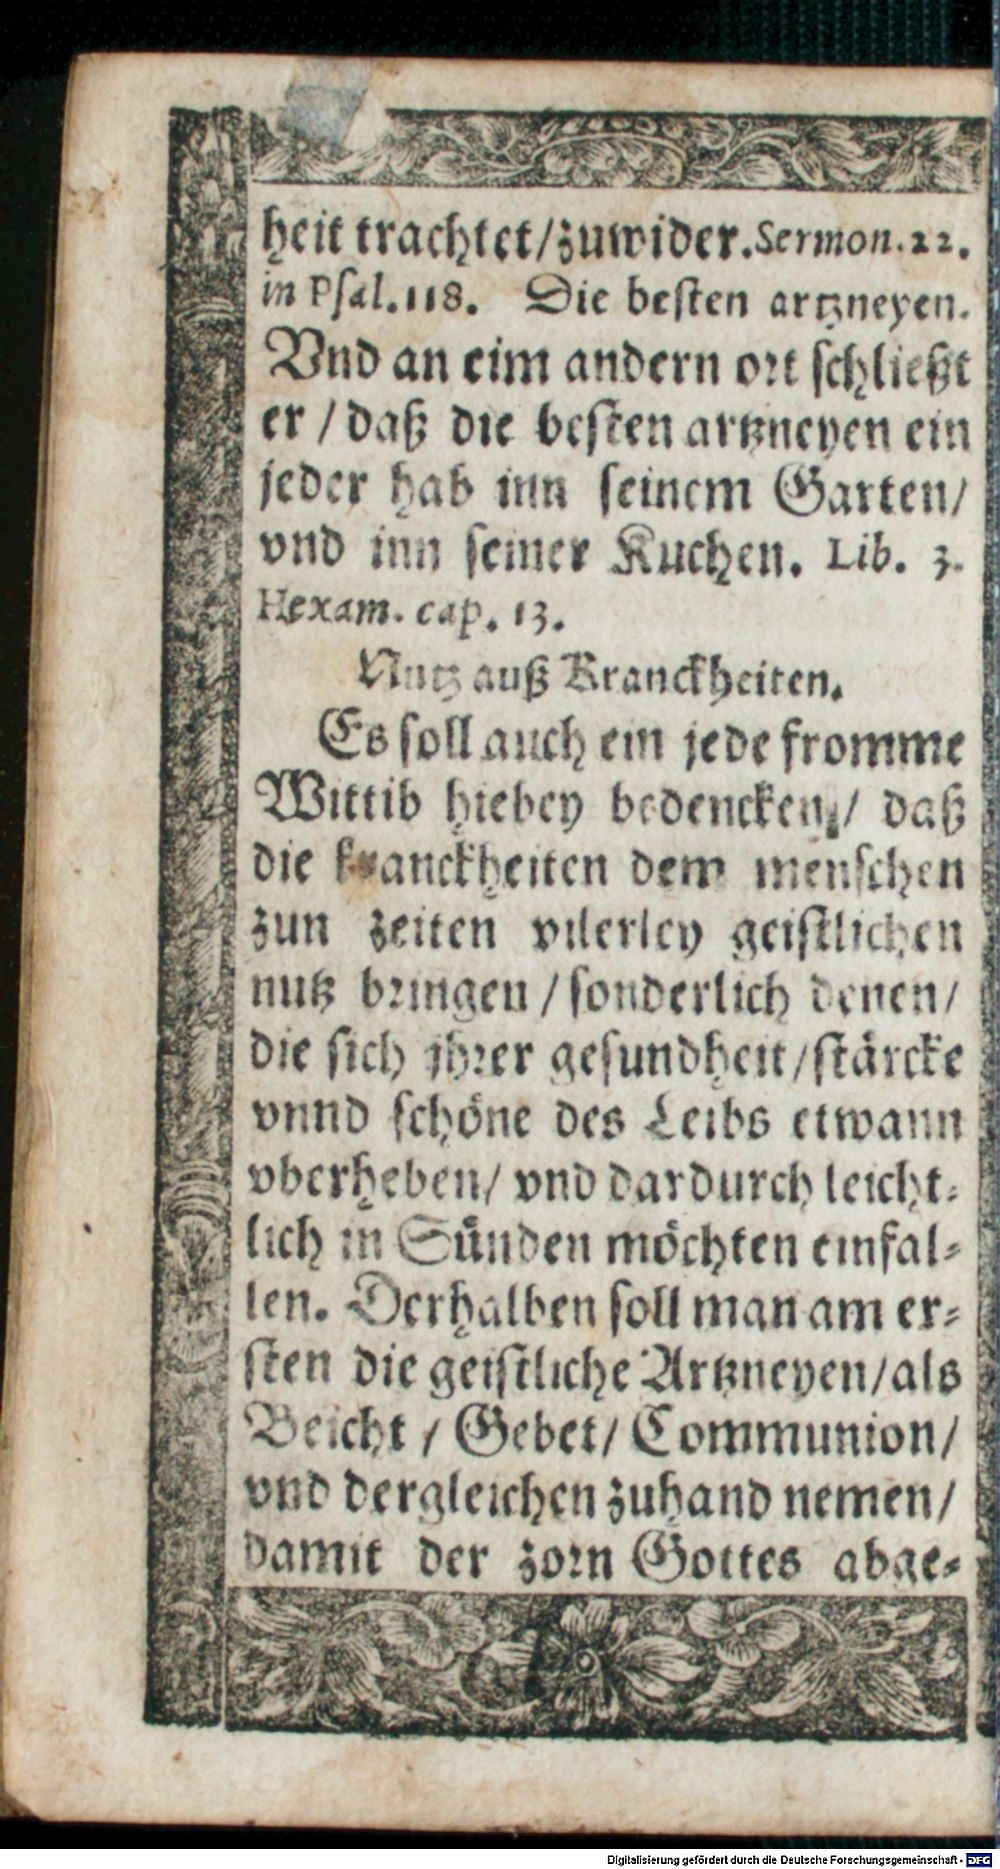 heit trachtet/zuwider. Sermon. 22.
in Psal. 118. Die besten artzneyen.
Vnd an eim andern ort schließt
er / daß die besten artzneyen ein
jeder hab inn seinem Garten/
vnd inn seiner Kuchen. Lib. 3.
Hexam. cap. 13.
Nutz auß Kranckheiten.
Es soll auch ein jede fromme
Wittib hiebey bedencken / daß
die kranckheiten dem menschen
zun zeiten vilerley geistlichen
nutz bringen / sonderlich denen/
die sich jhrer gesundheit/stärcke
vnnd schöne des Leibs etwann
vberheben/ vnd dardurch leicht-
lich in Sünden möchten einfal-
len. Derhalben soll man am er-
sten die geistliche Artzneyen/als
Beicht / Gebet/ Communion/
vnd dergleichen zuhand nemen/
damit der zorn Gottes abge-
Digitalisierung gefördert durch die Deutsche Forschungsgemeinschaft - DFG